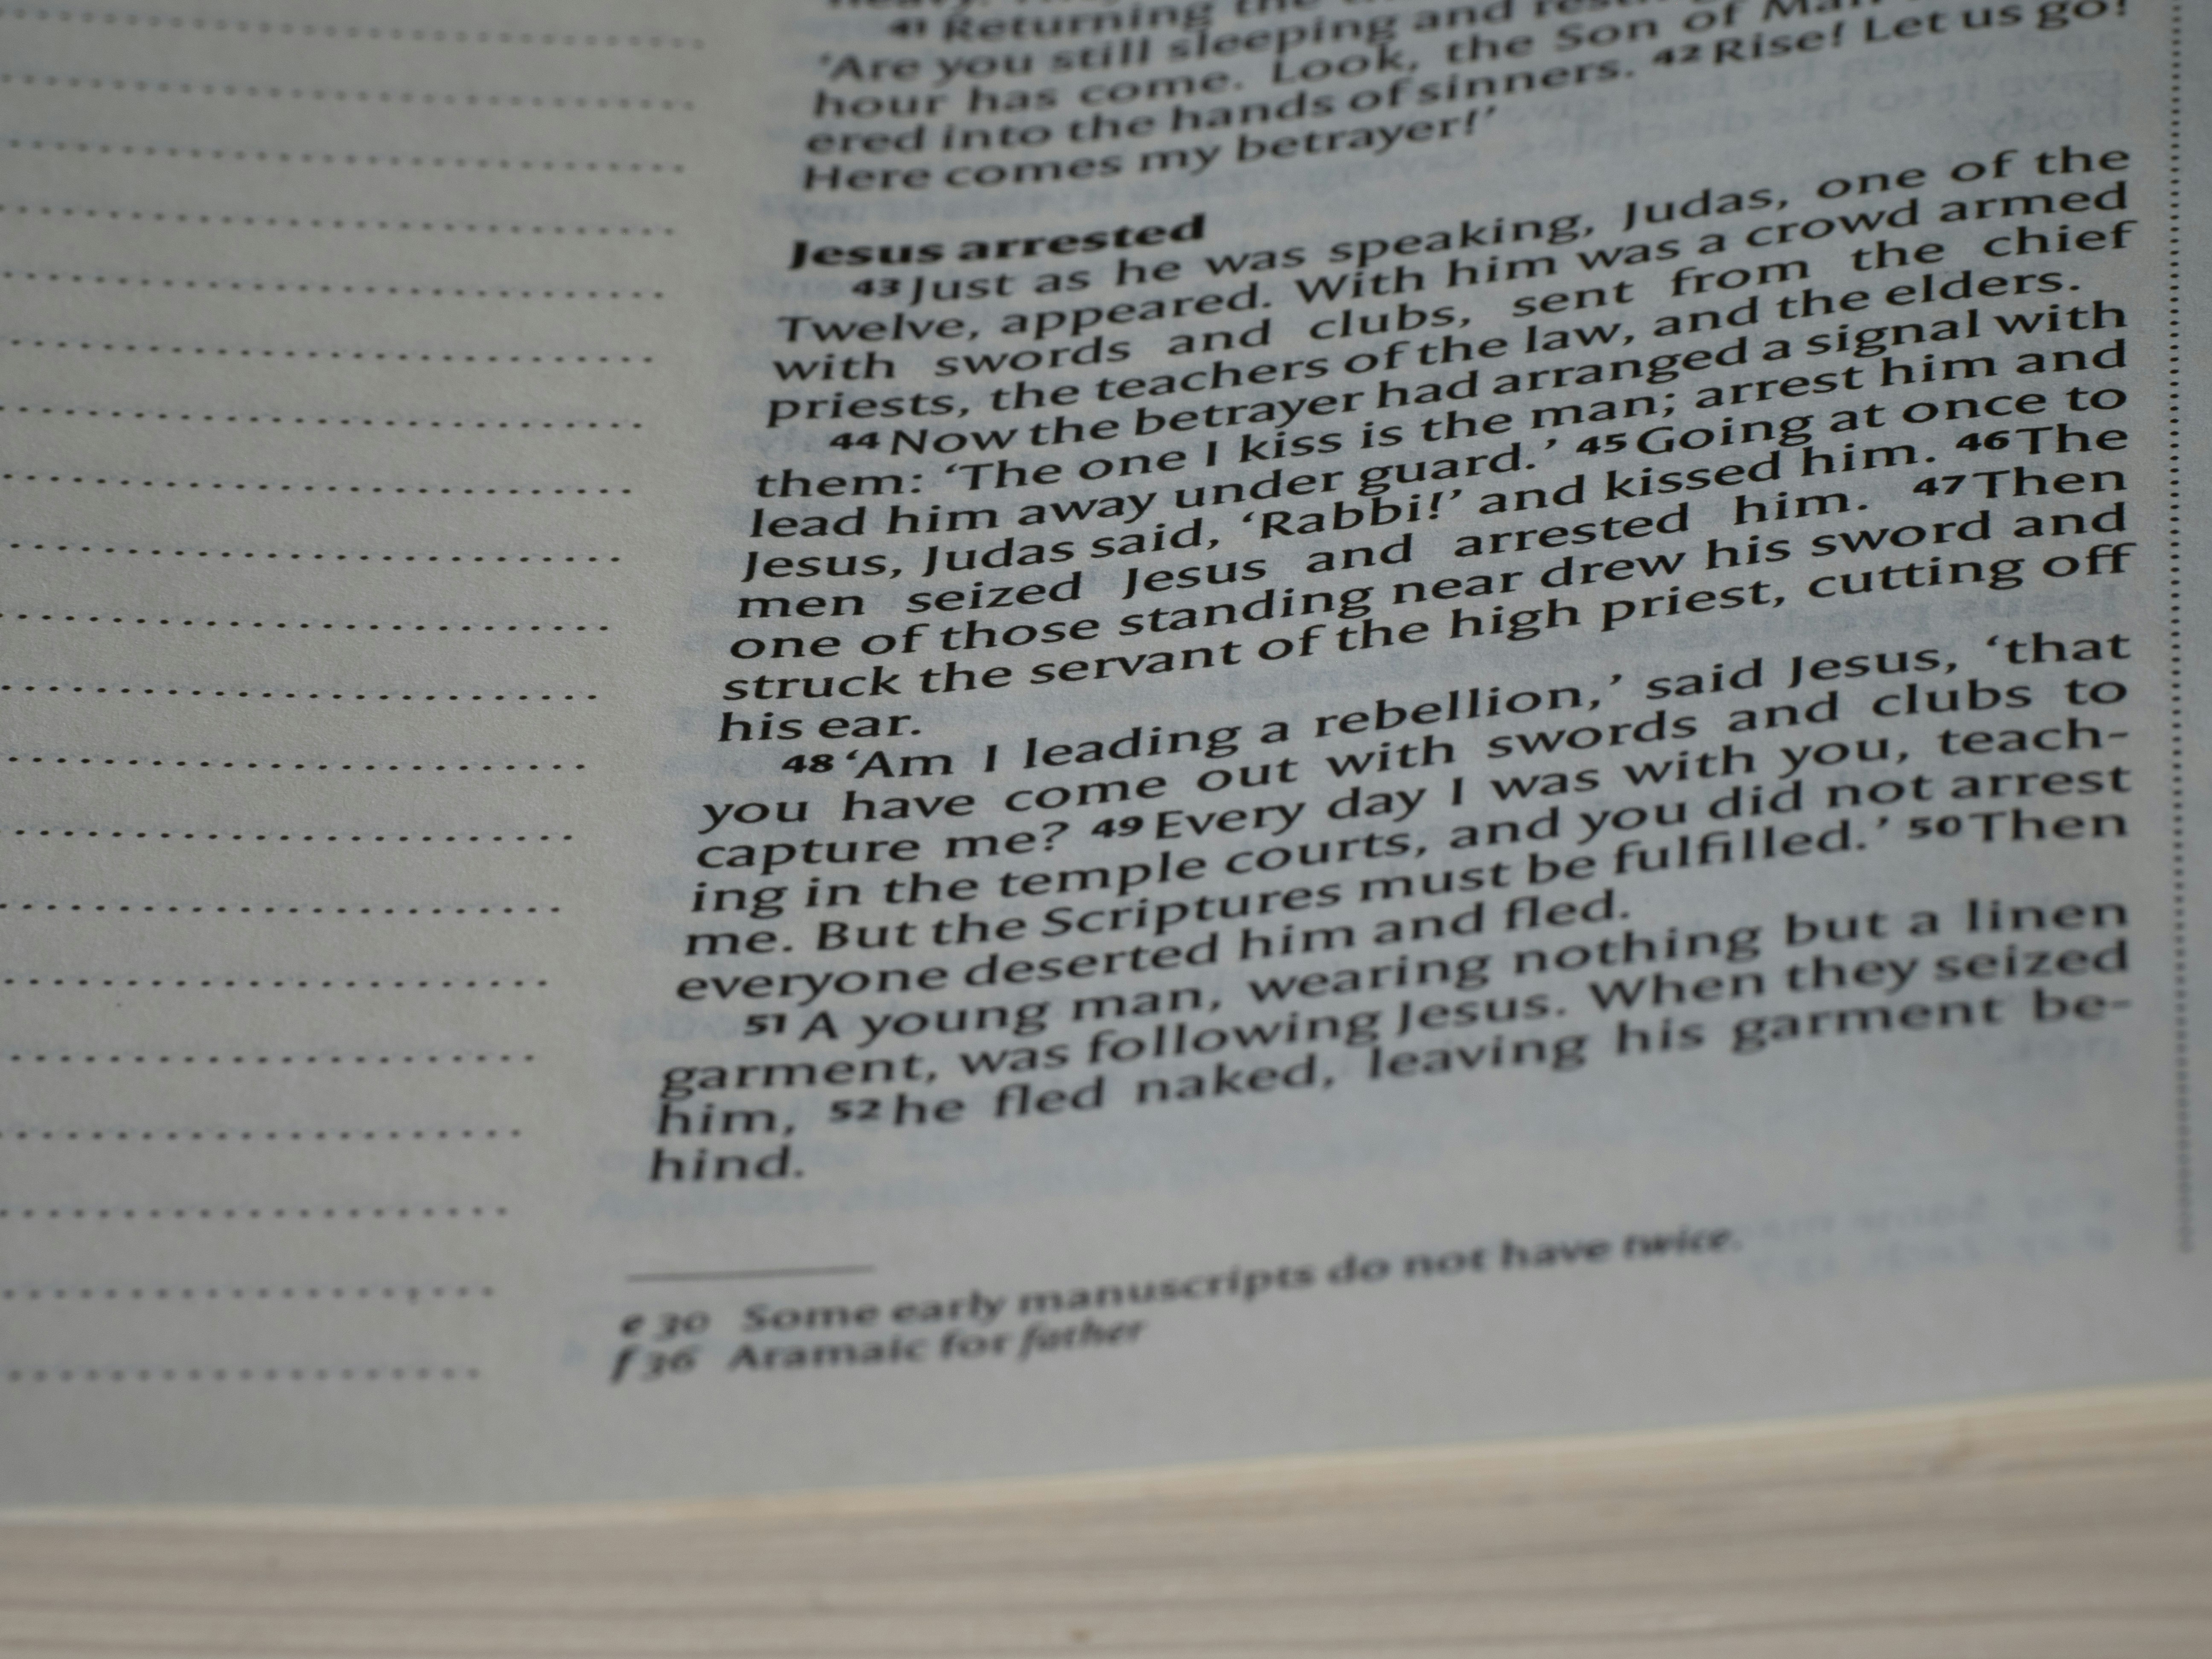 41 Returning the
‘Are you still sleeping and
hour has come. Look, the Son of Man
ered into the hands of sinners. 42 Rise! Let us go!
Here comes my betrayer!’
Jesus arrested
43 Just as he was speaking, Judas, one of the
Twelve, appeared. With him was a crowd armed
with swords and clubs, sent from the chief
priests, the teachers of the law, and the elders.
44 Now the betrayer had arranged a signal with
them: ‘The one I kiss is the man; arrest him and
lead him away under guard.’ 45 Going at once to
Jesus, Judas said, ‘Rabbi!’ and kissed him. 46 The
men seized Jesus and arrested him. 47 Then
one of those standing near drew his sword and
struck the servant of the high priest, cutting off
his ear.
48 ‘Am I leading a rebellion,’ said Jesus, ‘that
you have come out with swords and clubs to
capture me? 49 Every day I was with you, teach-
ing in the temple courts, and you did not arrest
me. But the Scriptures must be fulfilled.’ 50 Then
everyone deserted him and fled.
51 A young man, wearing nothing but a linen
garment, was following Jesus. When they seized
him, 52 he fled naked, leaving his garment be-
hind.
e 30 Some early manuscripts do not have twice.
f 36 Aramaic for father